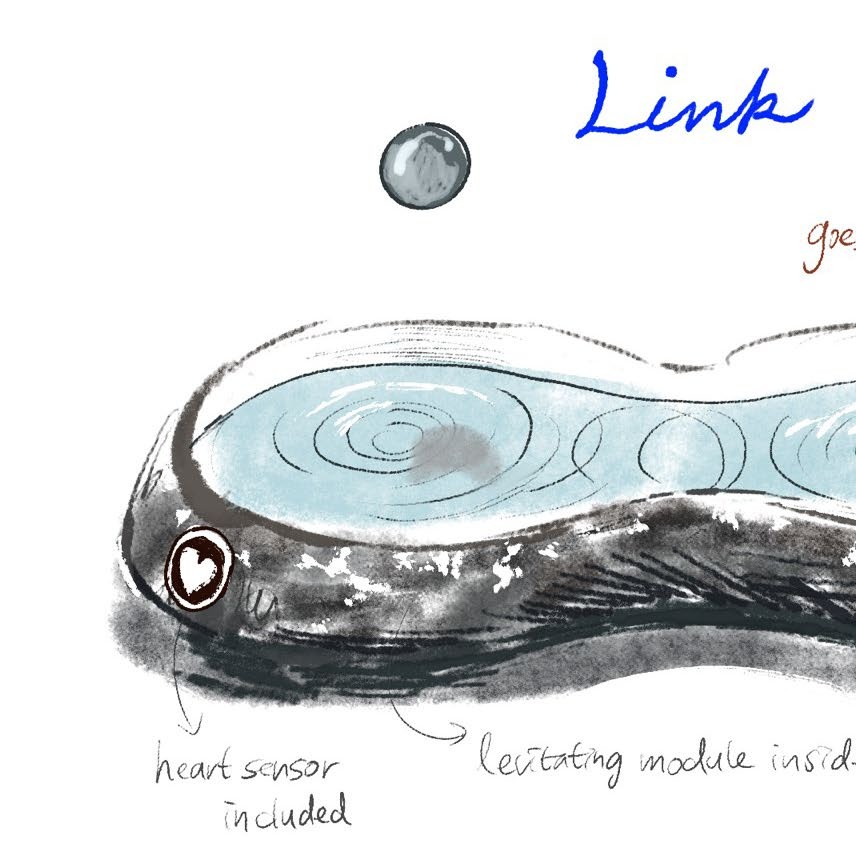 Link
goes
heart sensor
included
levitating module inside